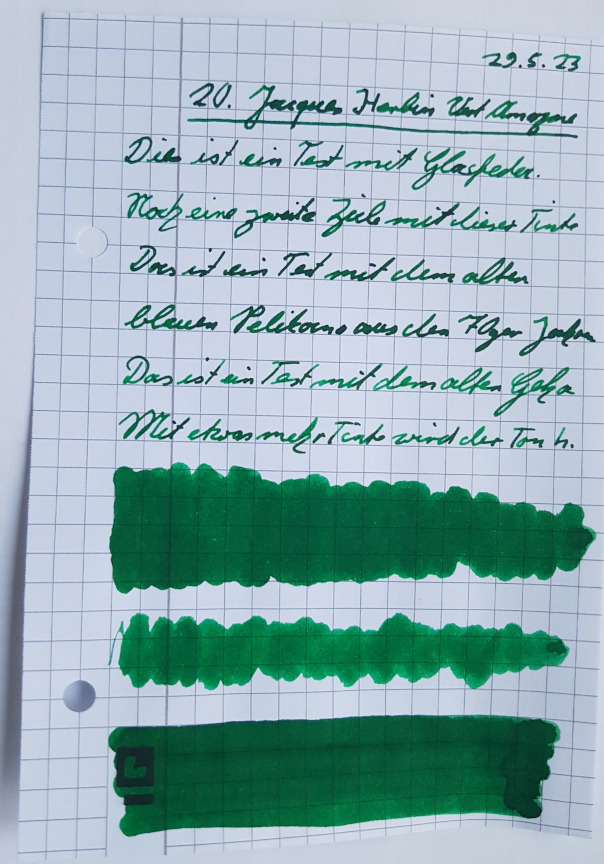 29.5.23
20. Jacques Herbin Vert Amazone
Dies ist ein Test mit Glasfeder.
Noch eine zweite Zeile mit dieser Tinte
Das ist ein Test mit dem alten
blauen Pelikano aus den 70ger Jahren
Das ist ein Test mit dem alten Geha
Mit etwas mehr Tinte wird der Ton h.